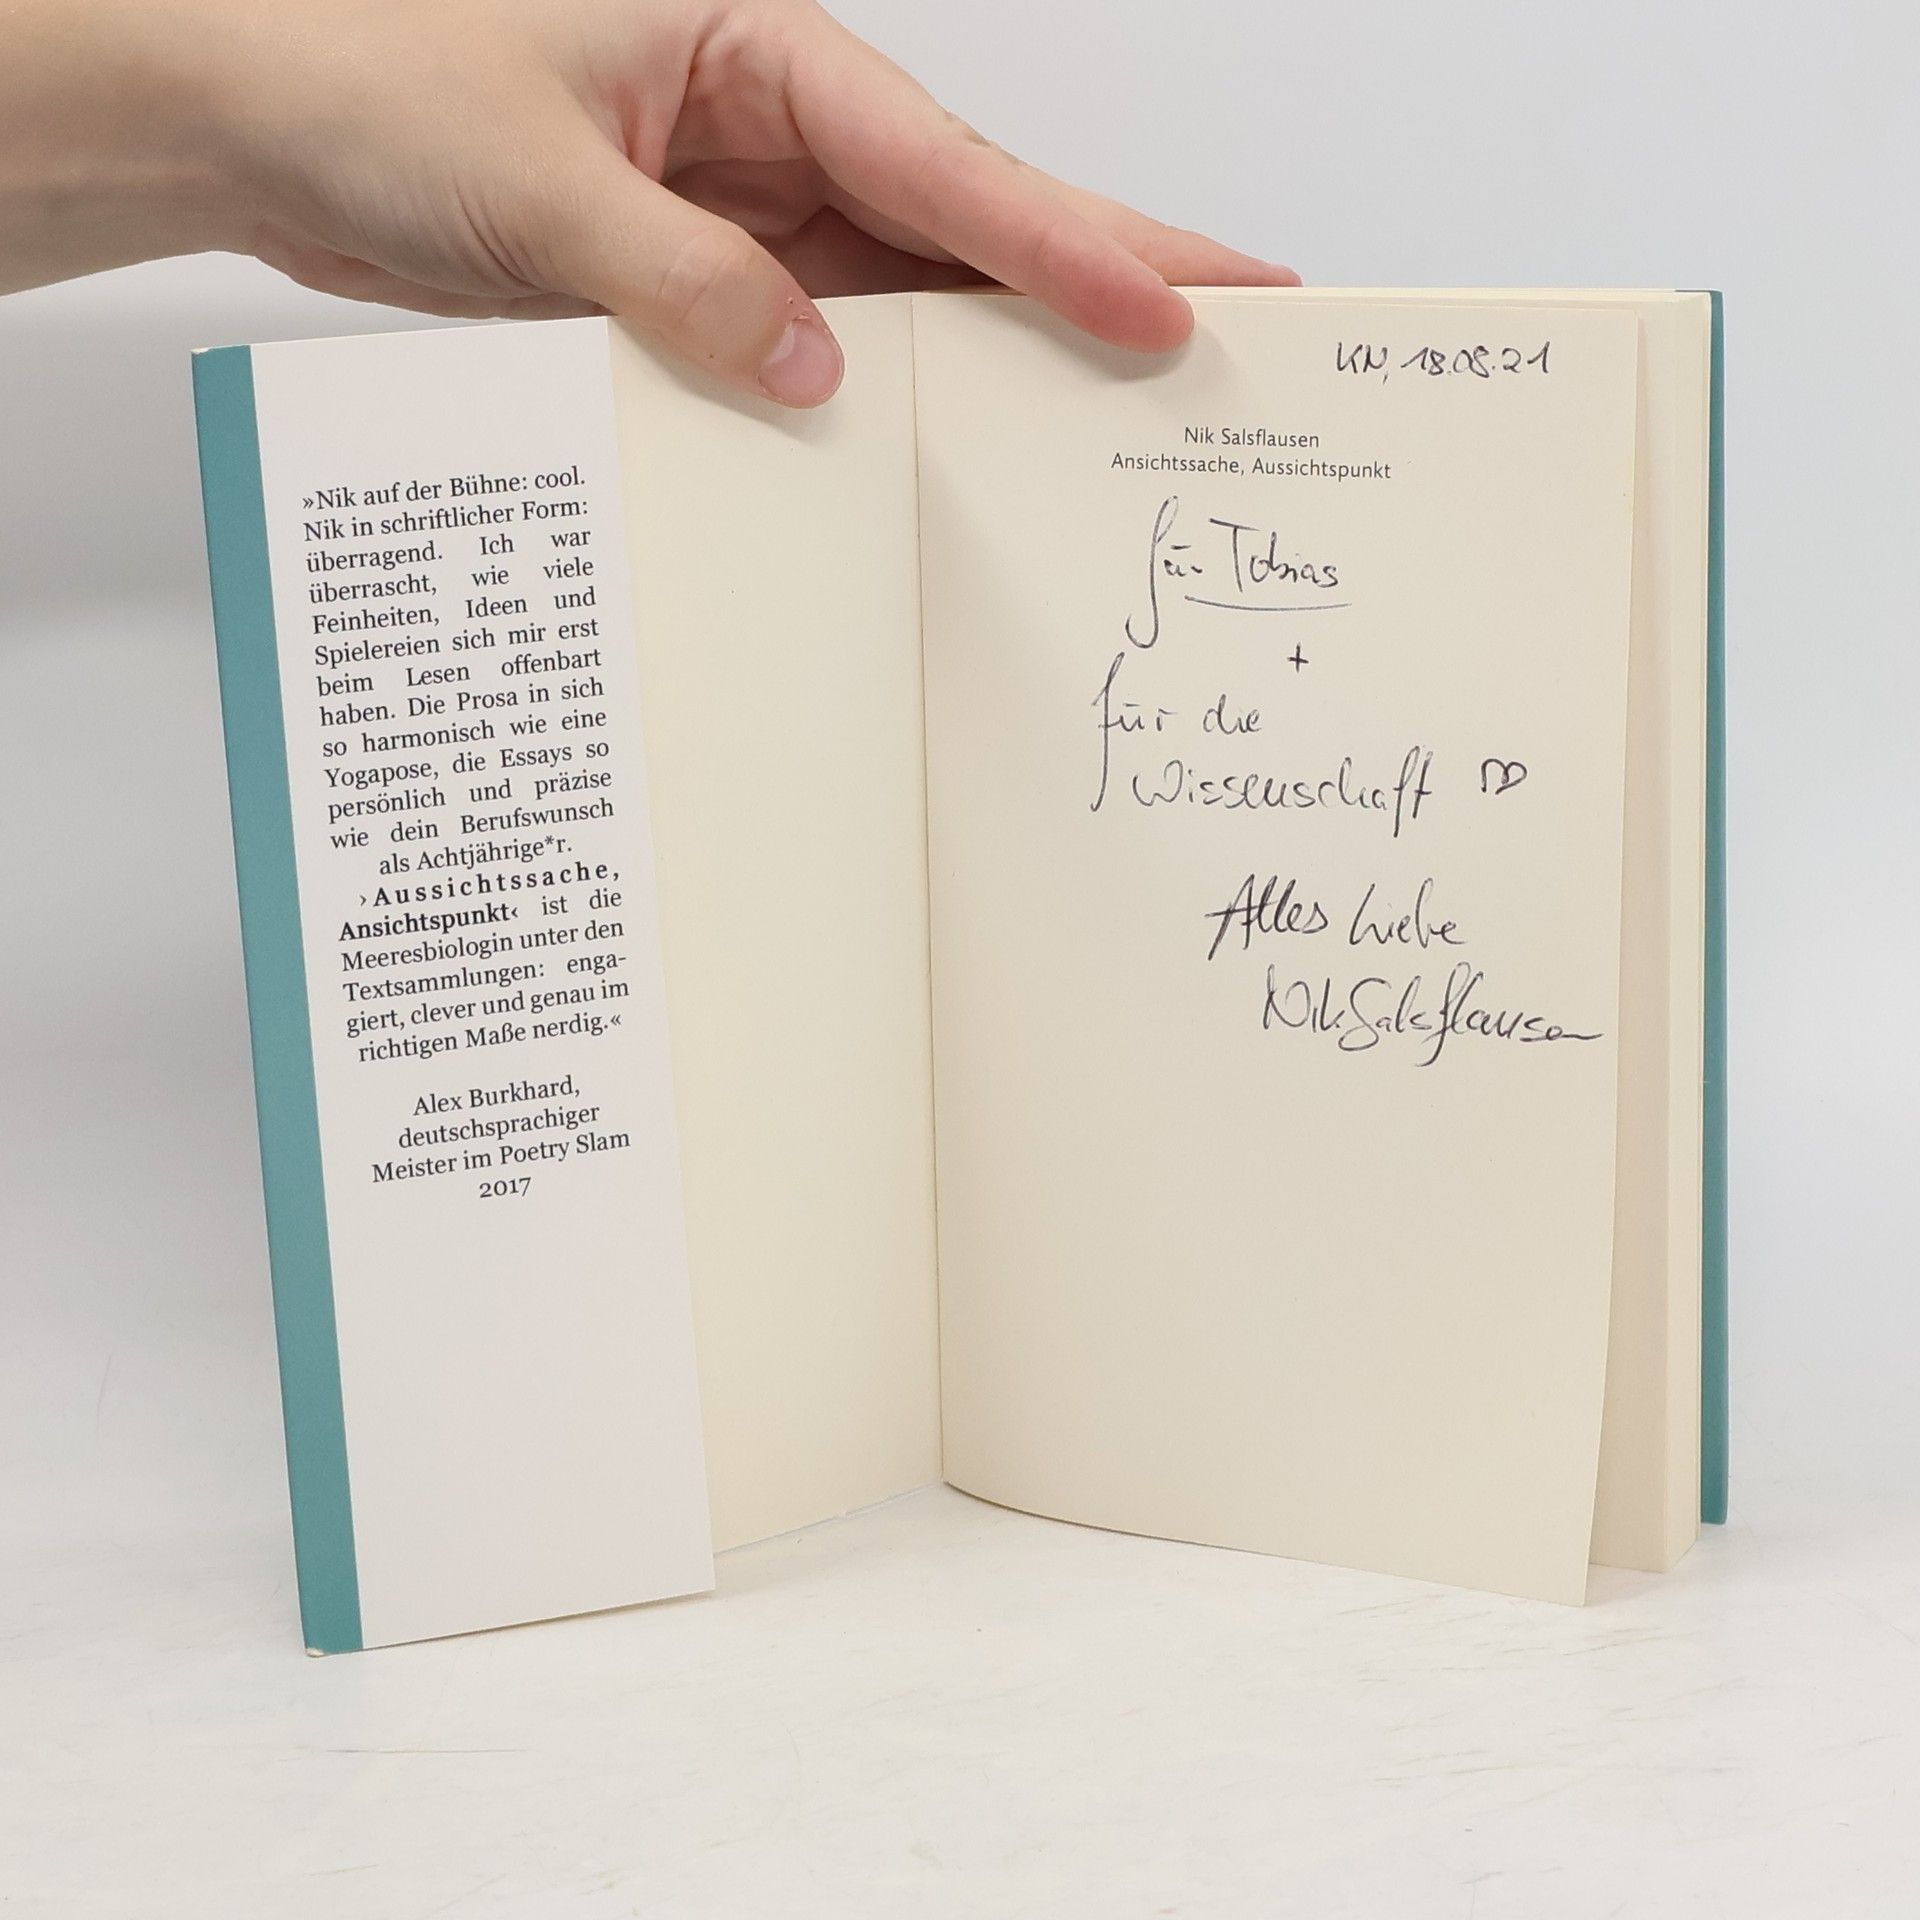 »Nik auf der Bühne: cool.
Nik in schriftlicher Form:
überragend. Ich war
überrascht, wie viele
Feinheiten, Ideen und
Spielereien sich mir erst
beim Lesen offenbart
haben. Die Prosa in sich
so harmonisch wie eine
Yogapose, die Essays so
persönlich und präzise
wie dein Berufswunsch
als Achtjährige*r.
›Aussichtssache,
Ansichtspunkt‹ ist die
Meeresbiologin unter den
Textsammlungen: enga-
giert, clever und genau im
richtigen Maße nerdig.«
Alex Burkhard,
deutschsprachiger
Meister im Poetry Slam
2017
KN, 18.08.21
Nik Salsflausen
Ansichtssache, Aussichtspunkt
für Tobias
+
für die
Wissenschaft ♡
Alles Liebe
Nik Salsflausen